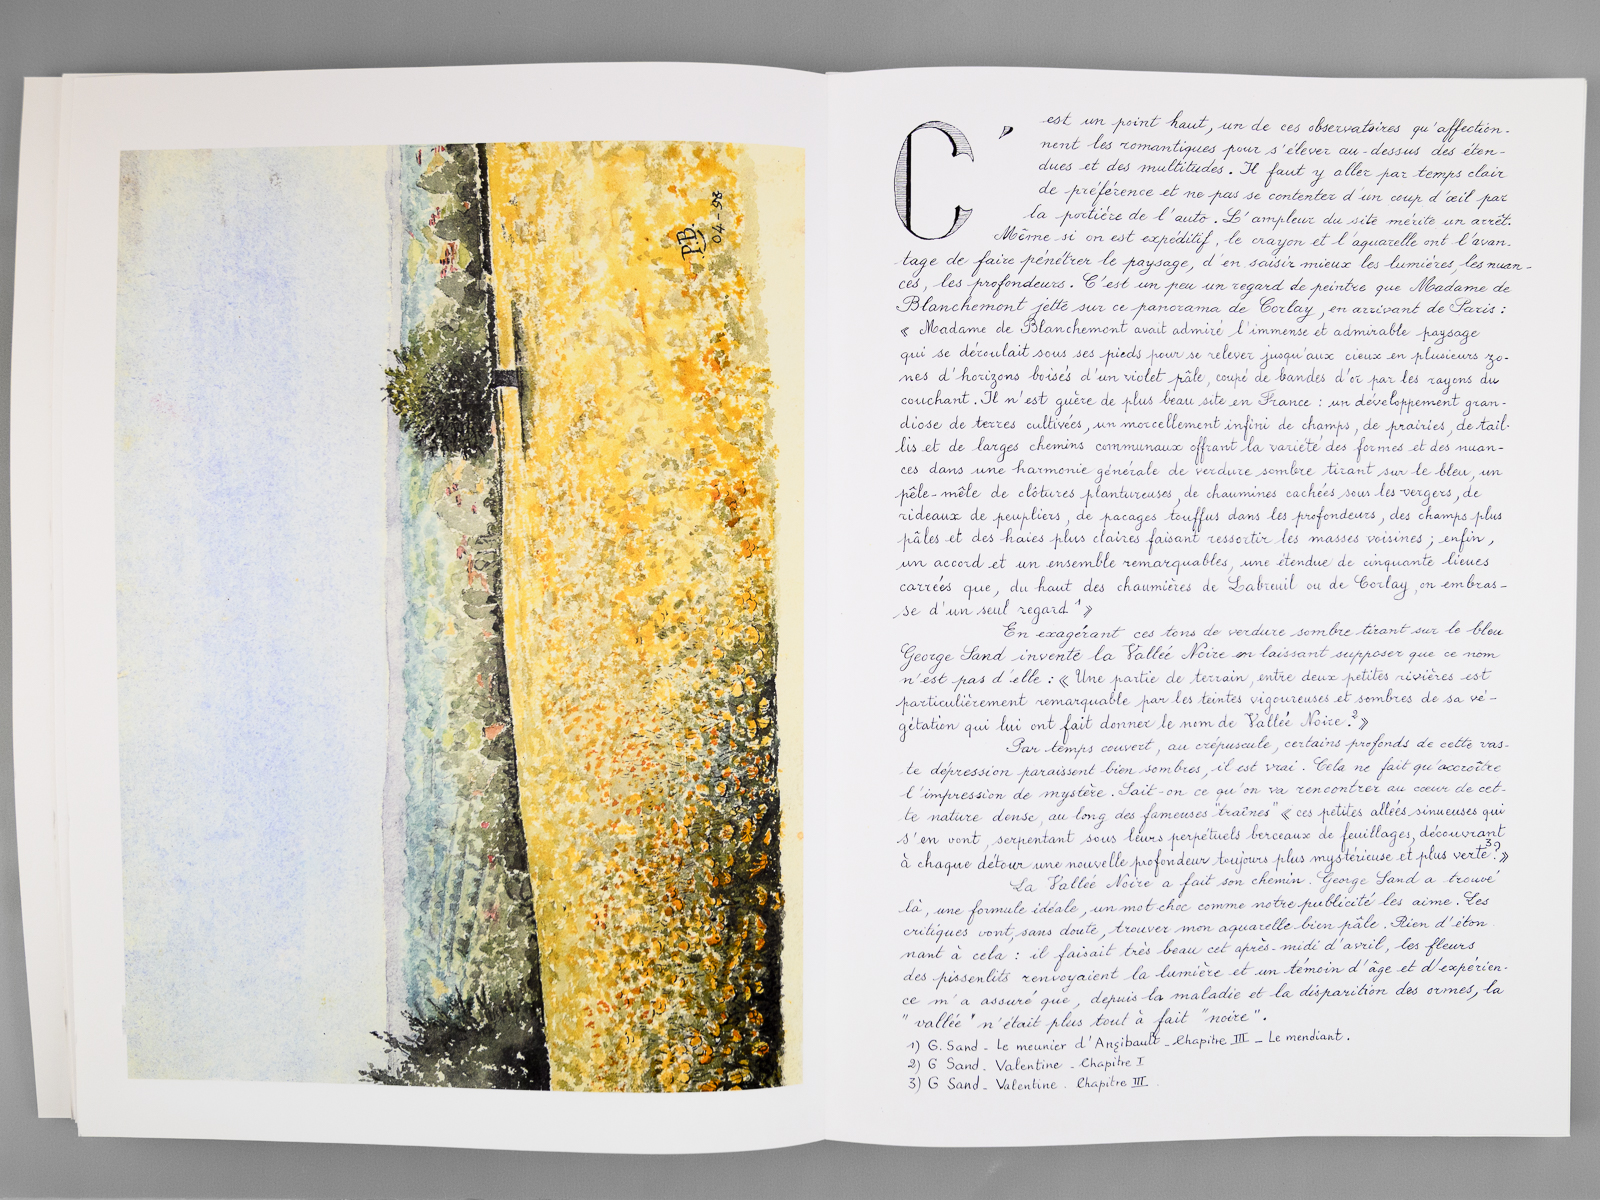 P.B.
04-98
C'est un point haut, un de ces observatoires qu'affection-
nent les romantiques pour s'élever au-dessus des éten-
dues et des multitudes. Il faut y aller par temps clair
de préférence et ne pas se contenter d'un coup d'œil par
la portière de l'auto. L'ampleur du site mérite un arrêt.
Même si on est expéditif, le crayon et l'aquarelle ont l'avan-
tage de faire pénétrer le paysage, d'en saisir mieux les lumières, les nuan-
ces, les profondeurs. C'est un peu un regard de peintre que Madame de
Blanchemont jette sur ce panorama de Corlay, en arrivant de Paris :
« Madame de Blanchemont avait admiré l'immense et admirable paysage
qui se déroulait sous ses pieds pour se relever jusqu'aux cieux en plusieurs zo-
nes d'horizons boisés d'un violet pâle, coupé de bandes d'or par les rayons du
couchant. Il n'est guère de plus beau site en France : un développement gran-
diose de terres cultivées, un morcellement infini de champs, de prairies, de tail-
lis et de larges chemins communaux offrant la variété des formes et des nuan-
ces dans une harmonie générale de verdure sombre tirant sur le bleu, un
pêle-mêle de clôtures plantureuses, de chaumines cachées sous les vergers, de
rideaux de peupliers, de pacages touffus dans les profondeurs, des champs plus
pâles et des haies plus claires faisant ressortir les masses voisines ; enfin,
un accord et un ensemble remarquables, une étendue de cinquante lieues
carrées que, du haut des chaumières de Labreuil ou de Corlay, on embras-
se d'un seul regard 1 »
En exagérant ces tons de verdure sombre tirant sur le bleu
George Sand invente la Vallée Noire en laissant supposer que ce nom
n'est pas d'elle : « Une partie de terrain, entre deux petites rivières est
particulièrement remarquable par les teintes vigoureuses et sombres de sa vé-
gétation qui lui ont fait donner le nom de Vallée Noire. 2 »
Par temps couvert, au crépuscule, certains profonds de cette vas-
te dépression paraissent bien sombres, il est vrai. Cela ne fait qu'accroître
l'impression de mystère. Sait-on ce qu'on va rencontrer au cœur de cet-
te nature dense, au long des fameuses "traînes" « ces petites allées sinueuses qui
s'en vont, serpentant sous leurs perpétuels berceaux de feuillages, découvrant
à chaque détour une nouvelle profondeur toujours plus mystérieuse et plus verte 3 ? »
La Vallée Noire a fait son chemin. George Sand a trouvé
là, une formule idéale, un mot choc comme notre publicité les aime. Les
critiques vont, sans doute, trouver mon aquarelle bien pâle. Rien d'éton
nant à cela : il faisait très beau cet après-midi d'avril, les fleurs
des pissenlits renvoyaient la lumière et un témoin d'âge et d'expérien-
ce m'a assuré que, depuis la maladie et la disparition des ormes, la
"vallée" n'était plus tout à fait "noire".
1) G. Sand - Le meunier d'Angibault - Chapitre III - Le mendiant.
2) G Sand. Valentine - Chapitre I
3) G Sand - Valentine. Chapitre III.